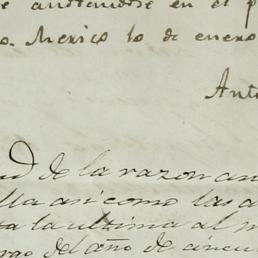 e andtendose en el p
o. Mexico 10 de enero
Anto
ud de la razon an
lla asi como las a
ta la ultima al m
argo del año de